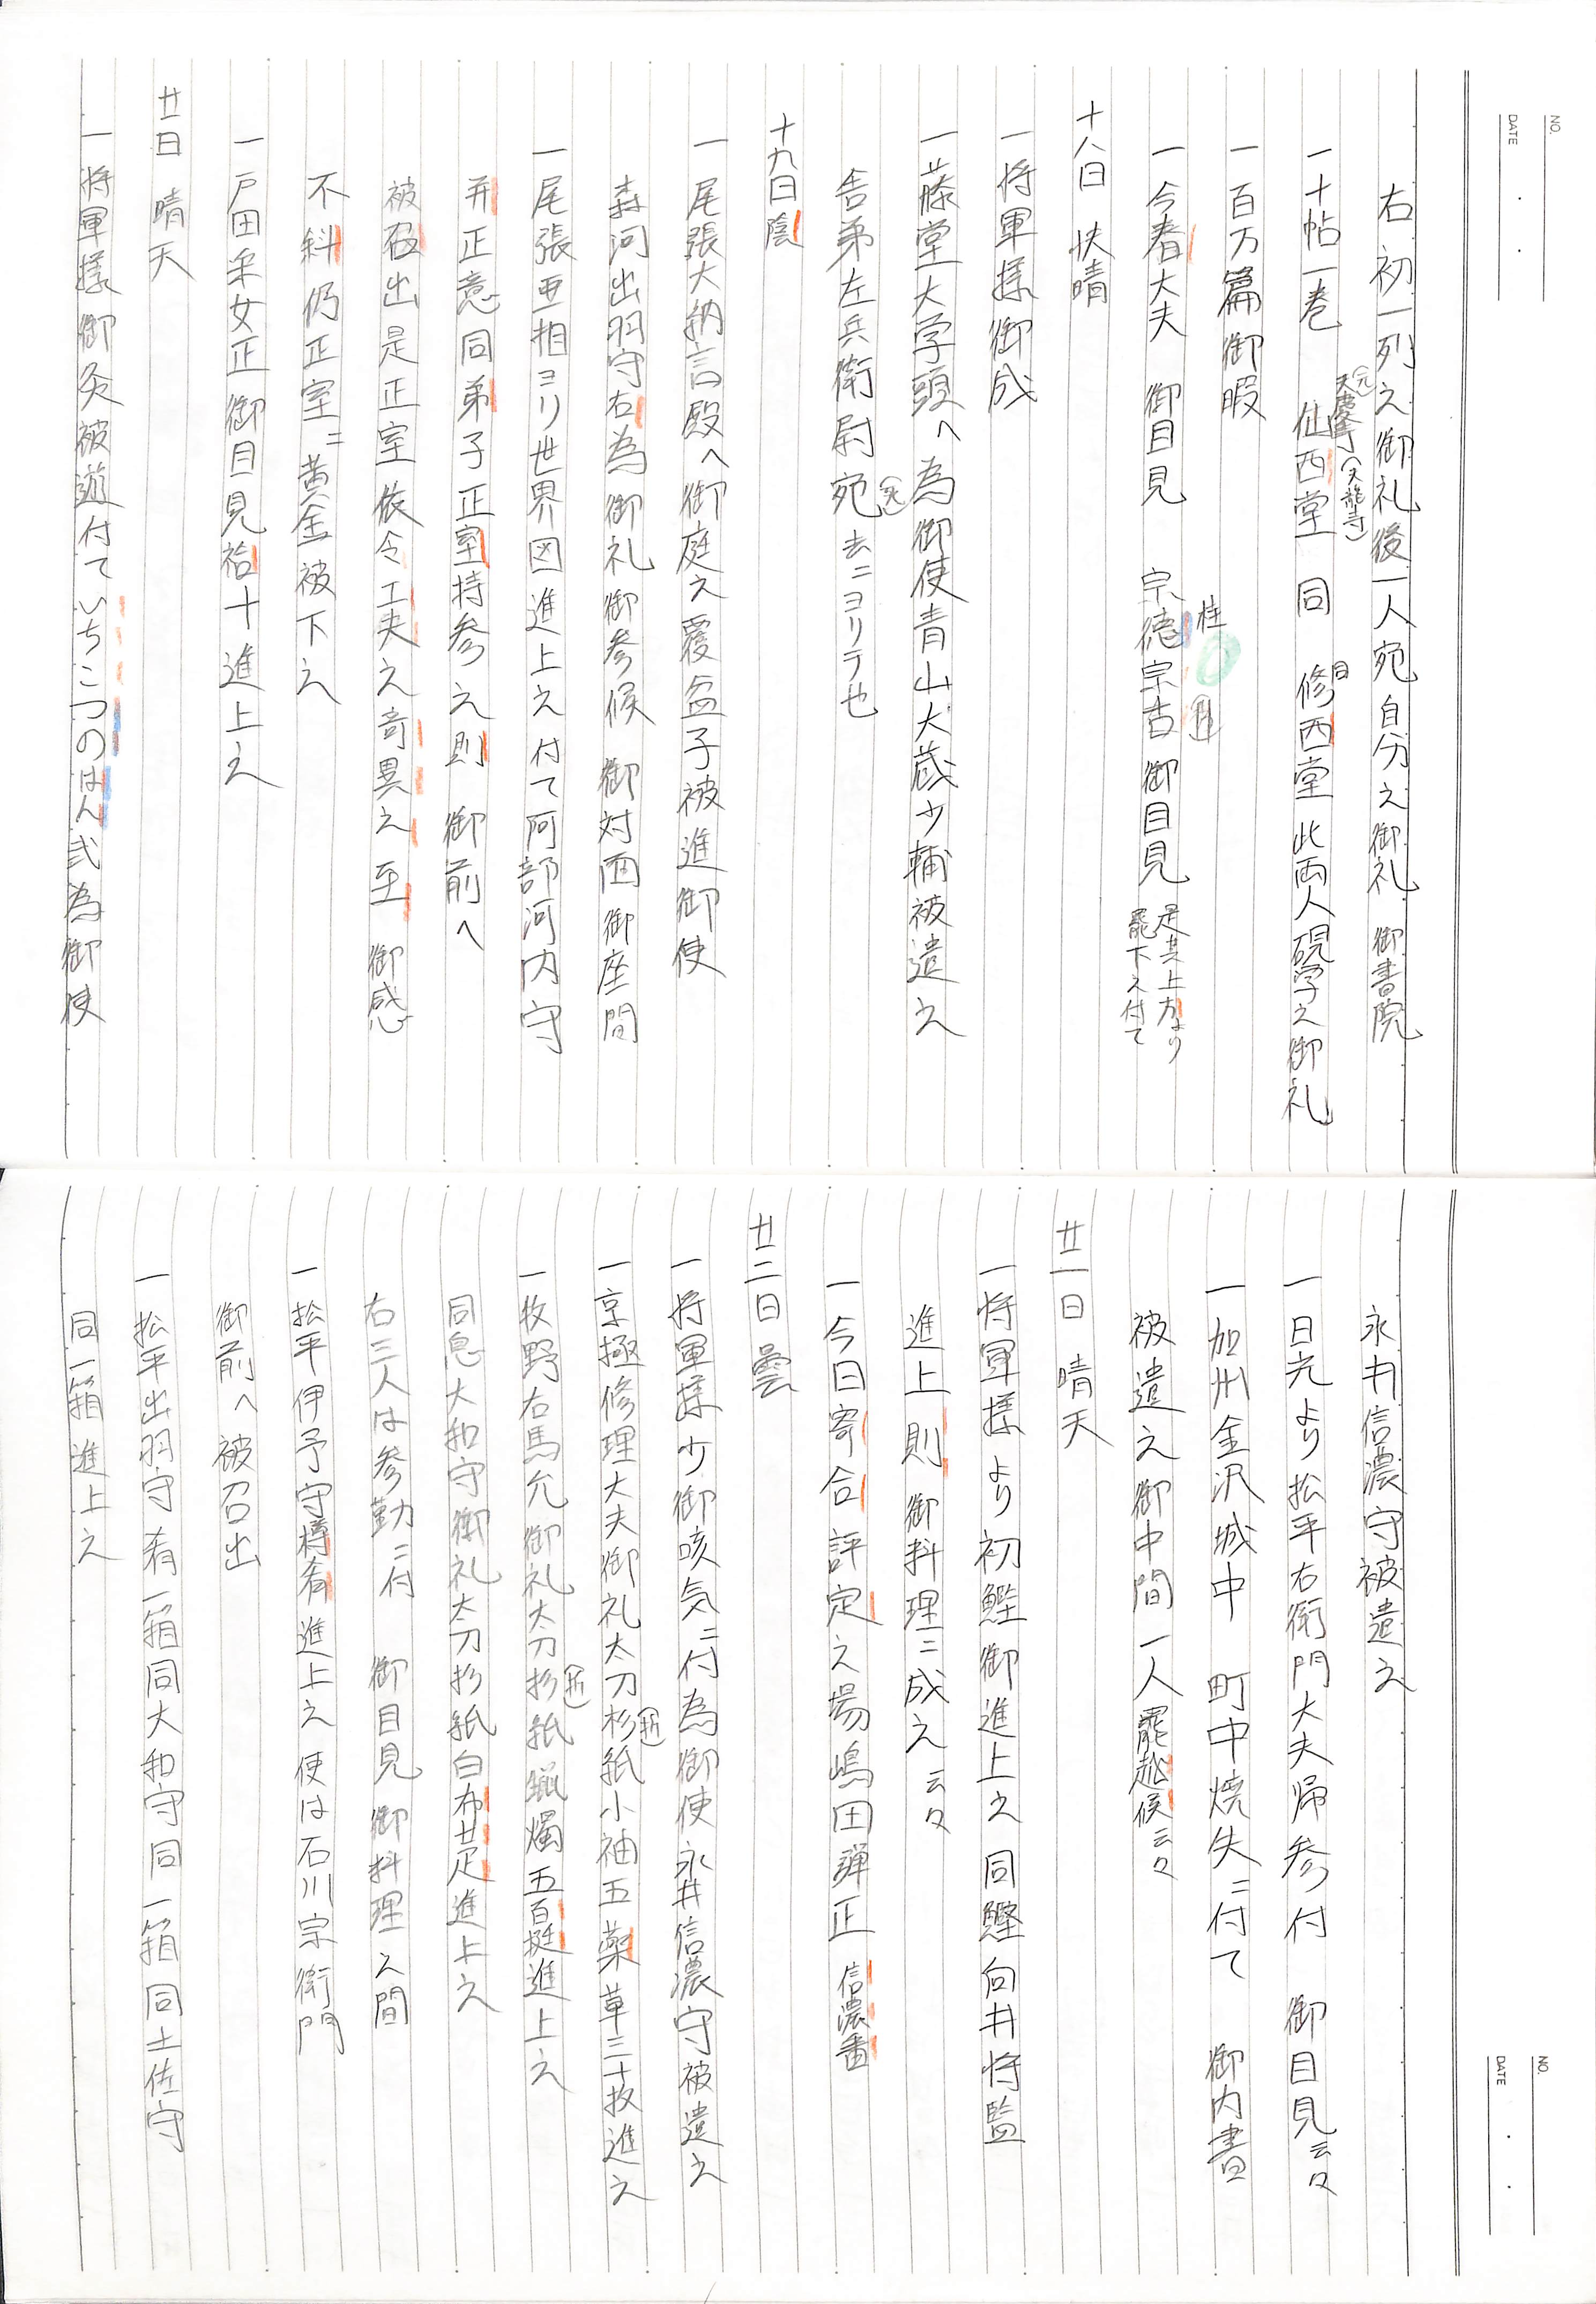 NO.
DATE
右初一列之御礼後一人宛自分之御礼 御書院
一十帖一巻 仙西堂 同 修西堂 此両人硯学之御礼
(元)
(天龍寺)
一百万篇御暇
一今春大夫 御目見 宗徳宗古御目見 是共上方より
罷下之付て
桂
十八日 快晴
一将軍様御成
一藤堂大学頭へ為御使青山大蔵少輔被遣之
舎弟左兵衛尉宛(死)去ニヨリテ也
十九日陰
一尾張大納言殿へ御庭之覆盆子被進御使
森河出羽守右為御礼御参候 御対面御座間
一尾張亜相ヨリ世界図進上之付て阿部河内守
并正意同弟子正室持参之則 御前へ
被召出是正室依令工夫之奇異之至 御感
不斜仍正室ニ黄金被下之
一戸田采女正御目見袷十進上之
廿日 晴天
一将軍様御灸被遊付ていちこつのはん弐為御使
NO.
DATE
永井信濃守被遣之
一日光より松平右衛門大夫帰参付 御目見云々
一加州金沢城中 町中焼失ニ付て 御内書
被遣之御中間一人罷越候云々
廿一日 晴天
一将軍様より初鰹御進上之同鰹向井将監
進上則 御料理ニ成之云々
一今日寄合評定之場嶋田弾正 信濃番
廿二日 曇
一将軍様少御咳気ニ付為御使永井信濃守被遣之
一京極修理大夫御礼太刀杉(折)紙小袖五薬草三十枚進之
一牧野右馬允御礼太刀杉(折)紙蝋燭五百挺進上之
同息大和守御礼太刀杉紙白布廿疋進上之
右三人は参勤ニ付 御目見御料理之間
一松平伊予守樽肴進上之使は石川宗衛門
御前へ被召出
一松平出羽守肴一箱同大和守同一箱同土佐守
同一箱進上之